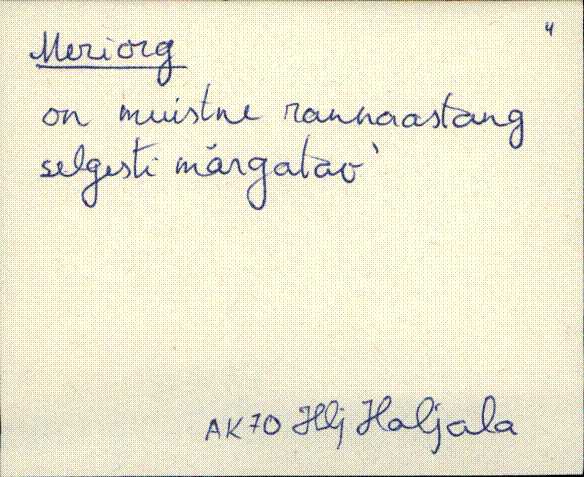 4
Meriorg
on muistne rannaastang
selgesti märgatav
AK70 Hlj Haljala